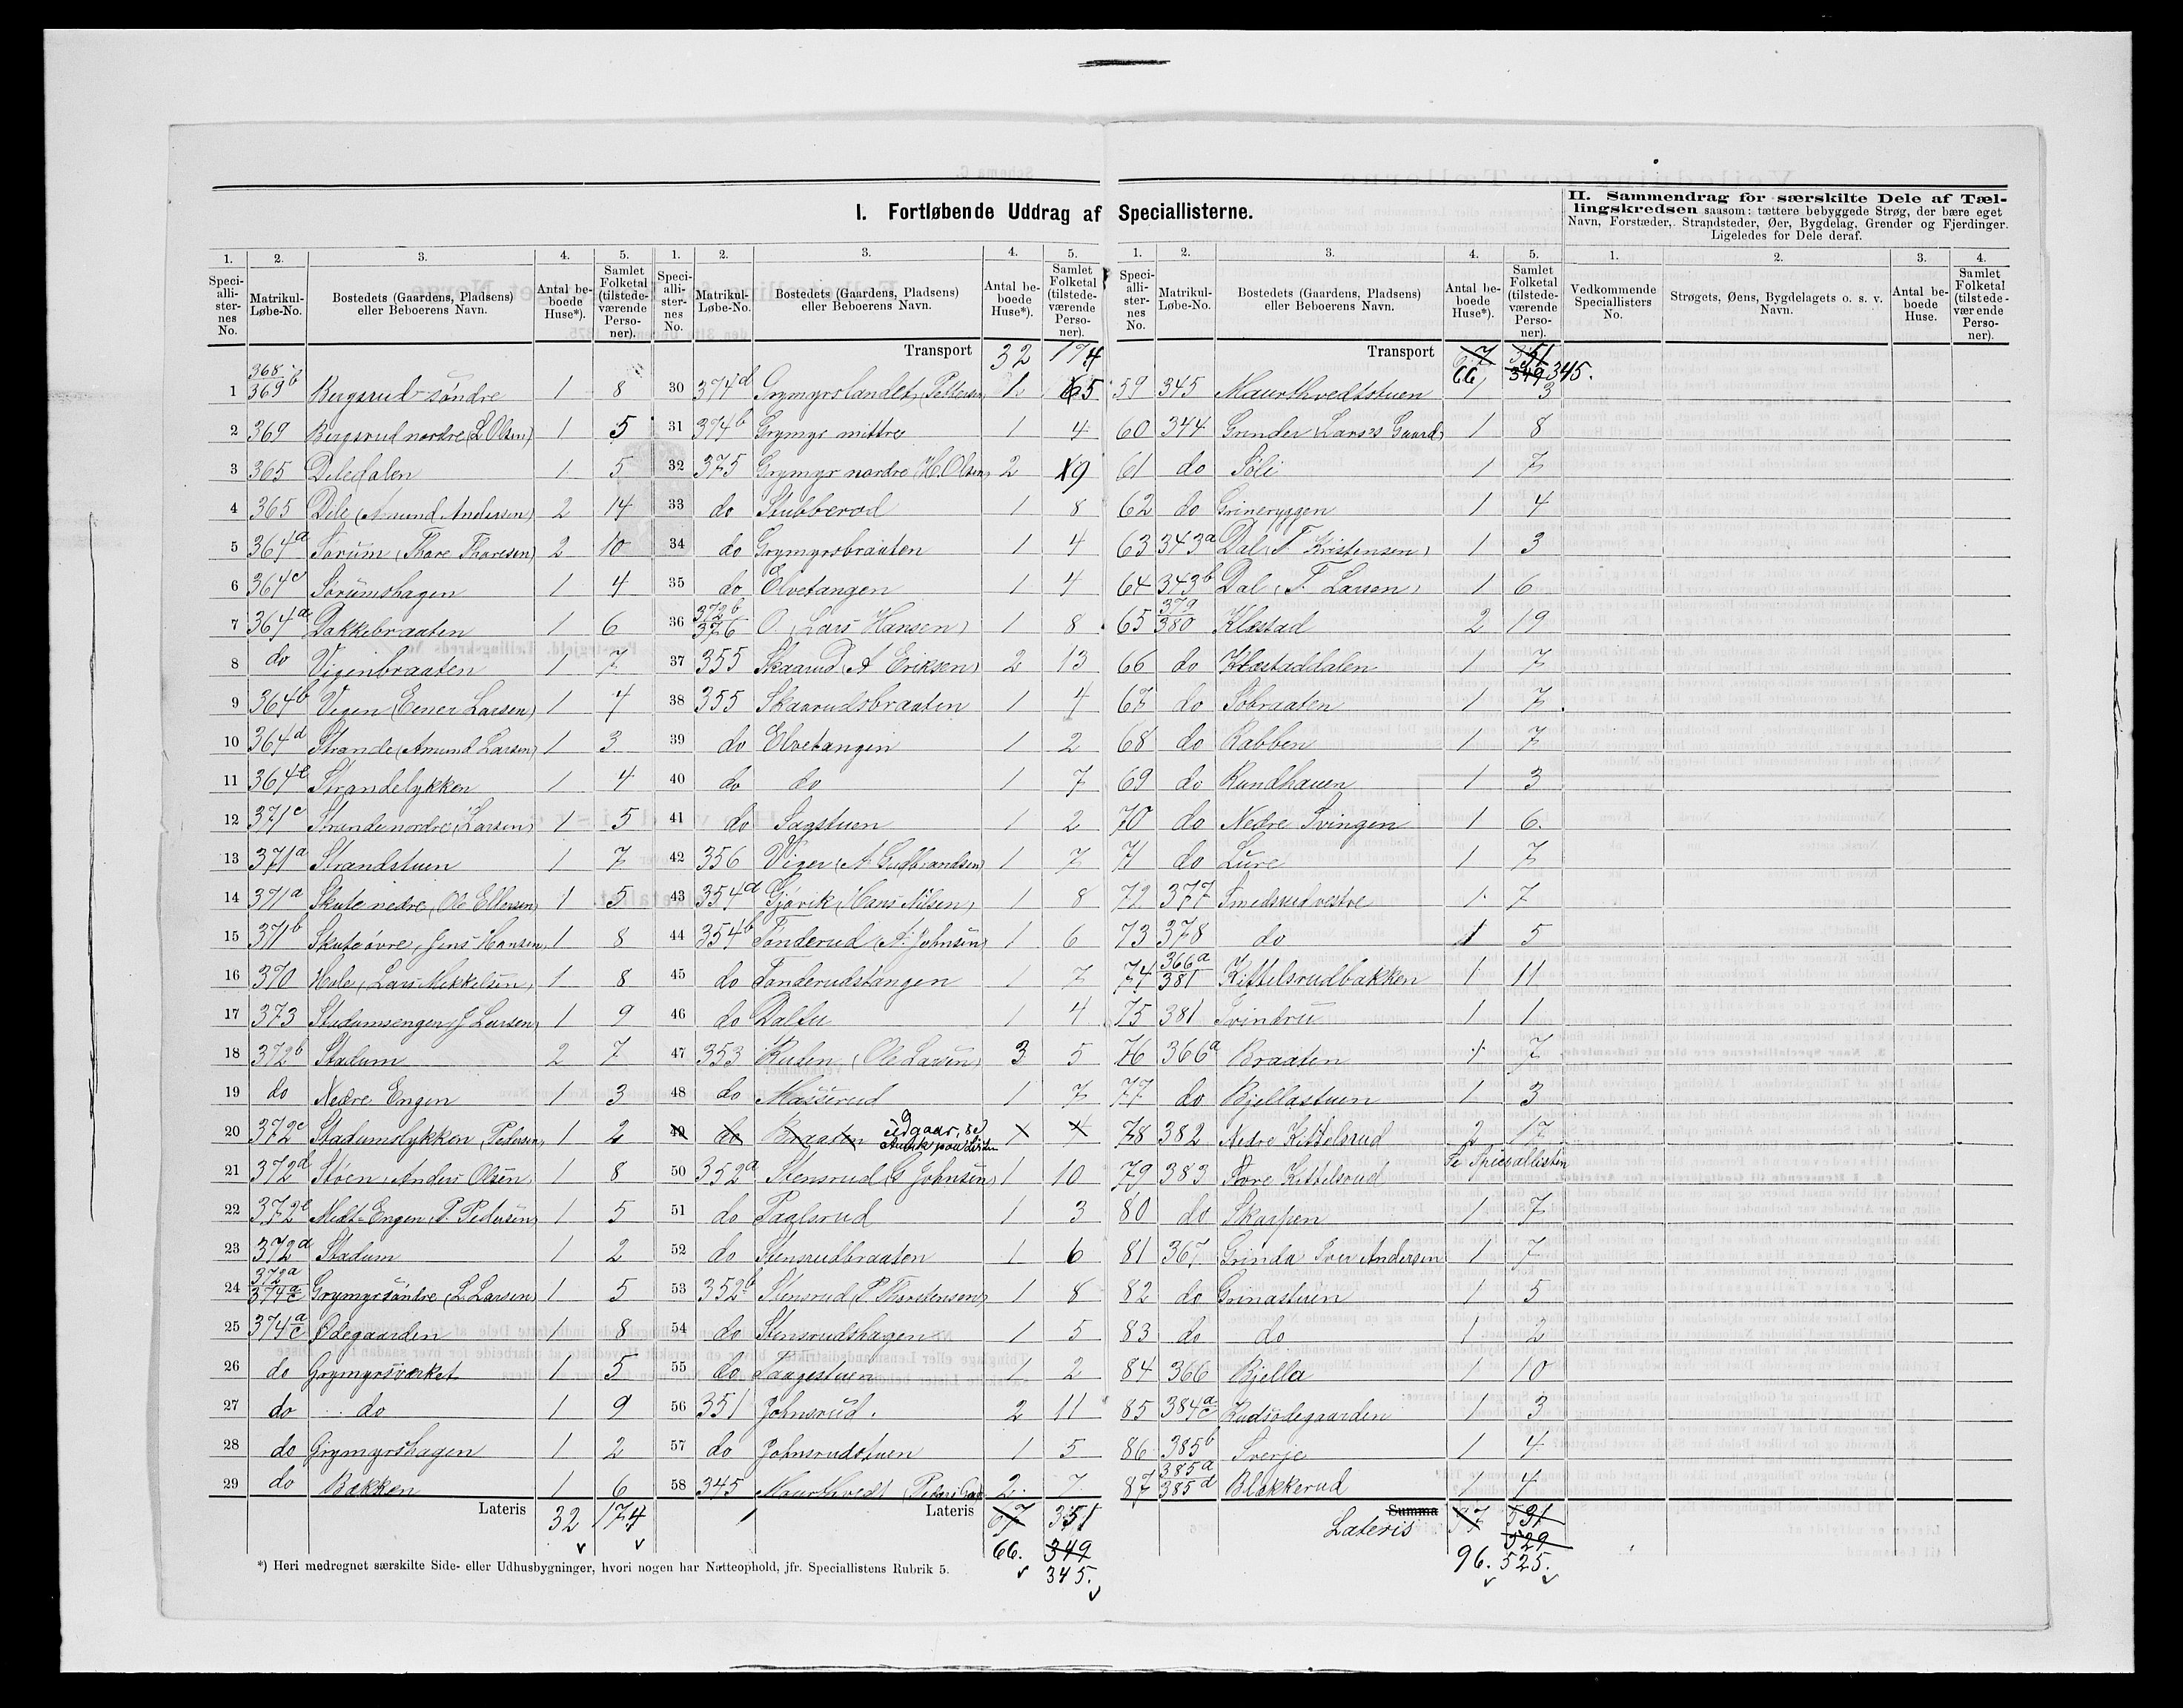 I. Fortløbende Uddrag af Speciallisterne.
II. Sammendrag for særskilte Dele af Tæl-
lingskredsen saasom: tættere bebyggede Strøg, der bære eget
Navn, Forstæder, Strandsteder, Øer, Bygdelag, Grender og Fjerdinger.
Ligeledes for Dele deraf.
1. 2. 3. 4. 5.
Speci-alli-ster-nes No. Matrikul-Løbe-No. Bostedets (Gaardens, Pladsens) eller Beboerens Navn. Antal be-boede Huse*). Samlet Folketal (tilstede-værende Perso-ner).
1 368/369b Bergsrud søndre 1 8
2 369 Bergsrud nordre (L Olsen) 1 5
3 365 Deledalen 1 5
4 365 Dele (Amund Andersen) 2 14
5 364a Sørum (Thore Thoresen) 2 10
6 364c Sørumshagen 1 4
7 364a Bakkebraaten 1 6
8 do Vigenbraaten 1 7
9 364b Vegen (Eener Larsen) 1 4
10 364d Strande (Amund Larsen) 1 3
11 364e Strandelykken 1 4
12 371c Strande nordre (Larsen) 1 5
13 371a Strandstuen 1 7
14 371a Skute nedre (Ole Ellersen) 1 5
15 371b Skute øvre, Jens Hansen 1 8
16 370 Hole, Lars Mikkelsen 1 8
17 373 Stadumsengen J Larsen 1 9
18 372b Stadum 2 7
19 do Nedre Engen 1 3
20 372c Stadumslykken (Pedersen) 1 2
21 372d Støen, Anders Olsen 1 8
22 372e Midt-Engen, P. Pedersen 1 5
23 372a Stadum 1 2
24 372a/374a/c Grymyr søndre (L Larsen) 1 5
25 374a/c Ødegaarden 1 8
26 do Grymyrsværket 1 5
27 do do 1 9
28 do Grymyrshagen 1 2
29 do Bakken 1 6
Lateris 32 174
1. 2. 3. 4. 5.
Speci-alli-ster-nes No. Matrikul-Løbe-No. Bostedets (Gaardens, Pladsens) eller Beboerens Navn. Antal be-boede Huse*). Samlet Folketal (tilstede-værende Perso-ner).
Transport 32 174
30 374d Grymyrslandet, Pettersen 1 5
31 374b Grymyr mittre 1 4
32 375 Grymyr nordre (H Olsen) 2 9
33 do Stubberød 1 8
34 do Grymyrsbraaten 1 4
35 do Elvetangen 1 4
36 372b/376 O. (Lars Hansen) 1 8
37 355 Skaarud (A Eriksen) 2 13
38 355 Skaarudsbraaten 1 4
39 do Elvetangen 1 2
40 do do 1 7
41 do Sagstuen 1 2
42 356 Viger (A Gudbrandsen) 1 7
43 354a Gjøvik (Hans Nilsen) 1 8
44 354b Tønderud (A. Johnsen) 1 6
45 do Tønderudstangen 1 7
46 do Dalen 1 4
47 353 Rusen (Ole Larsen) 3 5
48 do Masserud 1 7
49 do Braaten
50 352a Stensrud (G Johnsen) 1 10
51 do Paalsrud 1 3
52 do Stensrudbraaten 1 6
53 352b Stensrud (P Thorstensen) 1 8
54 do Stensrudshagen 1 5
55 do Taagestuen 1 2
56 351 Johnsrud. 2 11
57 do Johnsrudstuen 1 5
58 345 Maurthvedt 2 7
Lateris 67 351
66. 349
345.
1. 2. 3. 4. 5.
Speci-alli-ster-nes No. Matrikul-Løbe-No. Bostedets (Gaardens, Pladsens) eller Beboerens Navn. Antal be-boede Huse*). Samlet Folketal (tilstede-værende Perso-ner).
Transport 67 351
66 349 345.
59 345 Maurthvedtstuen 1 3
60 344 Grender Lars's Gaard 1 8
61 do Søli 1 7
62 do Grineryggen 1 4
63 343a Dal (T. Kristensen) 1 3
64 343b Dal (T. Larsen) 1 6
65 379/380 Klæstad 2 19
66 do Klæstaddalen 1 7
67 do Søbraaten 1 7
68 do Rabben 1 7
69 do Rundhauen 1 3
70 do Nedre Svingen 1 6
71 do Lure 1 7
72 377 Smedsrud vestre 1 7
73 378 do 1 5
74 366a/381 Kittelsrudbakken 1 11
75 381 Svintru 1 1
76 366a Braaten 1 7
77 do Bjellastuen 1 3
78 382 Nedre Kittelsrud 2 17
79 383 Øvre Kittelsrud Se Speciallisten
80 do Skarpen 1 7
81 367 Grinda Iver Andersen 1 7
82 do Grinastuen 1 5
83 do do 1 2
84 366 Bjella 1 10
85 384a/c Rudsødegaarden 1 3
86 385b Sverje 1 4
87 385a/385d Blækkerud 1 4
Summa
Lateris 97 531
529
96. 525.
1. 2. 3. 4.
Vedkommende Speciallisters No. Strøgets, Øens, Bygdelagets o. s. v. Navn. Antal be-boede Huse. Samlet Folketal (tilstede-værende Perso-ner).
*) Heri medregnet særskilte Side- eller Udhusbygninger, hvori nogen har Natteophold, jfr. Speciallistens Rubrik 5.